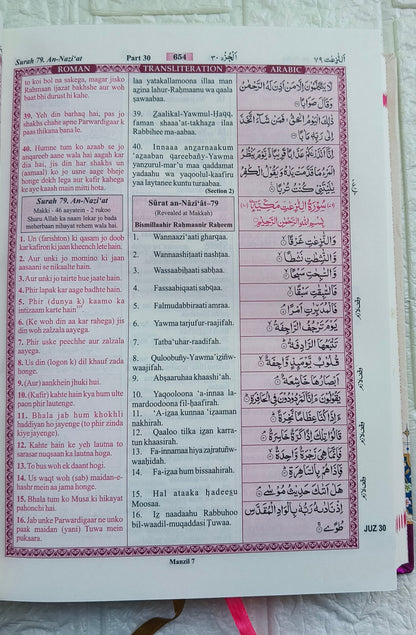 Surah 79. An-Nazi‘at Part 30 654 اَلْجُزْء ٣٠ اَلنّٰزِعٰت ٧٩
ROMAN TRANSLITERATION ARABIC
to koi bol na sakega, magar jisko
Rahmaan ijazat bakhshe aur woh
baat bhi durust hi kahe.
39. Yeh din barhaq hai, pas jo
shakhs chahe apne Parwardigaar k
paas thikana bana le.
40. Humne tum ko azaab se jo
anqareeb aane wala hai aagah kar
dia hai, jis din har shakhs un
(aamaal) ko jo usne aage bheje
honge dekh lega aur kafir kahega
ke aye kaash main mitti hota.
Surah 79. An-Nazi‘at
Makki - 46 aayatein - 2 rukoo
Shuru Allah ka naam lekar jo bada
meherbaan nihayat rehem wala hai.
1. Un (farishton) ki qasam jo doob
kar kafiron ki jaan kheench lete hain.
2. Aur unki jo momino ki jaan
aasaani se nikaalte hain.
3. Aur unki jo tairte hue jaate hain.
4. Phir lapak kar aage badhte hain.
5. Phir (dunya k) kaamo ka
intizaam karte hain
6. (Ke woh din aa kar rahega) jis
din woh zalzala aayega.
7. Phir uske peechhe aur zalzala
aayega.
8. Us din (logon k) dil khauf zada
honge.
9. (Aur) aankhein jhuki hui.
10. (Kafir) kahte hain kya hum ulte
paon phir laut jaenge.
11. Bhala jab hum khokhli
haddiyan ho jayenge (to phir zinda
kiye jayenge).
12. Kahte hain ke yeh lautna to
sarasar nuqsaan ka lautna hoga.
13. To bus woh ek daant hogi.
14. Us waqt woh (sab) maidan-e-
hashr mein aa jama honge.
15. Bhala tum ko Musa ki hikayat
pahonchi hai.
16. Jab unke Parwardigaar ne unko
paak maidan (yani) Tuwa mein
pukaara.
laa yatakallamoona illaa man
agina lahur-Raḥmaanu wa qaala
ṣawaabaa.
39. Zaalikal-Yawmul-Ḥaqq,
faman shaaa'at-takhaẓa ilaa
Rabbihee ma-aabaa.
40. Innaaa angarnaakum
'aẓaaban qareebañy-Yawma
yanẓurul-mar'u maa qaddamat
yadaahu wa yaqoolul-kaafiru
yaa laytanee kuntu turaabaa.
(Section 2)
Sûrat an-Nâzi‘ât–79
(Revealed at Makkah)
Bismillaahir Raḥmaanir Raḥeem
1. Wannaazi'aati gharqaa.
2. Wannaashiṭaati nashṭaa.
3. Wassaabiḥaati sabḥaa.
4. Fassaabiqaati sabqaa.
5. Falmudabbiraati amraa.
6. Yawma tarjufur-raajifah.
7. Tatba'uhar-raadifah.
8. Quloobuñy-Yawma'iẓiñw-
waajifah.
9. Abṣaaruhaa khaashi'ah.
10. Yaqooloona 'a-innaa la-
mardoodoona fil-ḥaafirah.
11. 'A-iẓaa kunnaa 'iẓaaman
nakhirah.
12. Qaaloo tilka iẓan karra-
tun khaasirah.
13. Fa-innamaa hiya zajratuñw-
waaḥidah.
14. Fa-iẓaa hum bissaahirah.
15. Hal ataaka ḥadeeṡu
Moosaa.
16. Iẓ naadaahu Rabbuhoo
bil-waadil-muqaddasi Ṭuwaa.
لَا يَتَكَلَّمُوْنَ اِلَّا مَنْ اَذِنَ لَهُ الرَّحْمٰنُ
وَقَالَ صَوَابًا
ذٰلِكَ الْيَوْمُ الْحَقُّ ۚ فَمَنْ شَآءَ اتَّخَذَ
اِلٰى رَبِّهٖ مَاٰبًا
اِنَّاۤ اَنْذَرْنٰكُمْ عَذَابًا قَرِيْبًا ۚ يَّوْمَ يَنْظُرُ
الْمَرْءُ مَا قَدَّمَتْ يَدٰهُ وَيَقُوْلُ الْكٰفِرُ
يٰلَيْتَنِيْ كُنْتُ تُرٰبًا
سُوْرَةُ النّٰزِعٰتِ مَكِّيَّةٌ
بِسْمِ اللّٰهِ الرَّحْمٰنِ الرَّحِيْمِ
وَالنّٰزِعٰتِ غَرْقًا
وَّالنّٰشِطٰتِ نَشْطًا
وَّالسّٰبِحٰتِ سَبْحًا
فَالسّٰبِقٰتِ سَبْقًا
فَالْمُدَبِّرٰتِ اَمْرًا
يَوْمَ تَرْجُفُ الرَّاجِفَةُ
تَتْبَعُهَا الرَّادِفَةُ
قُلُوْبٌ يَّوْمَئِذٍ وَّاجِفَةٌ
اَبْصَارُهَا خَاشِعَةٌ
يَقُوْلُوْنَ ءَاِنَّا لَمَرْدُوْدُوْنَ فِي الْحَافِرَةِ
ءَاِذَا كُنَّا عِظَامًا نَّخِرَةً
قَالُوْا تِلْكَ اِذًا كَرَّةٌ خَاسِرَةٌ
فَاِنَّمَا هِيَ زَجْرَةٌ وَّاحِدَةٌ
فَاِذَا هُمْ بِالسَّاهِرَةِ
هَلْ اَتٰىكَ حَدِيْثُ مُوْسٰى
اِذْ نَادٰىهُ رَبُّهٗ بِالْوَادِ الْمُقَدَّسِ
طُوًى
JUZ 30
Manzil 7